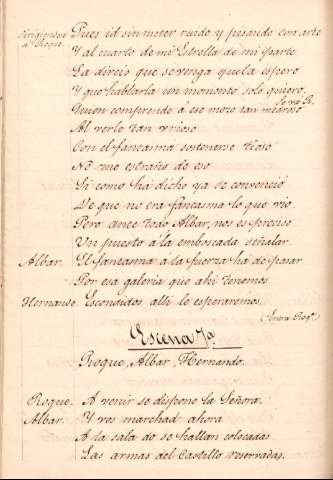 Dirigiendose á Roque. Pues id sin meter ruido y pisando con arte
Y al cuarto de mi Estrella de mi parte
La direis que se venga quila espero
Y que hablarla un momento solo quiero.
Quien comprende á ese mozo tan
Se va R.
Al verle tan
Con el fantasma sostenerse tioso
No me estraña de eso
Si como há dicho ya se convenció
De que no era fantasma lo que vio.
Pero ante todo Albar, nos es preciso
Un puesto á la emboscada señalar.
Albar. El fantasma á la fuerza há de pasar
Por esa galeria que ahi tenemos.
Hernando. Escondidos alli le esperaremos.
(Entra Roqe.)
Escena 7ª
Roque, Albar, Hernando.
Roque. A venir se dispone la Señora.
Albar. Y vos marchad ahora
A la sala do se hallan colocadas
Las armas del Castillo reservadas.